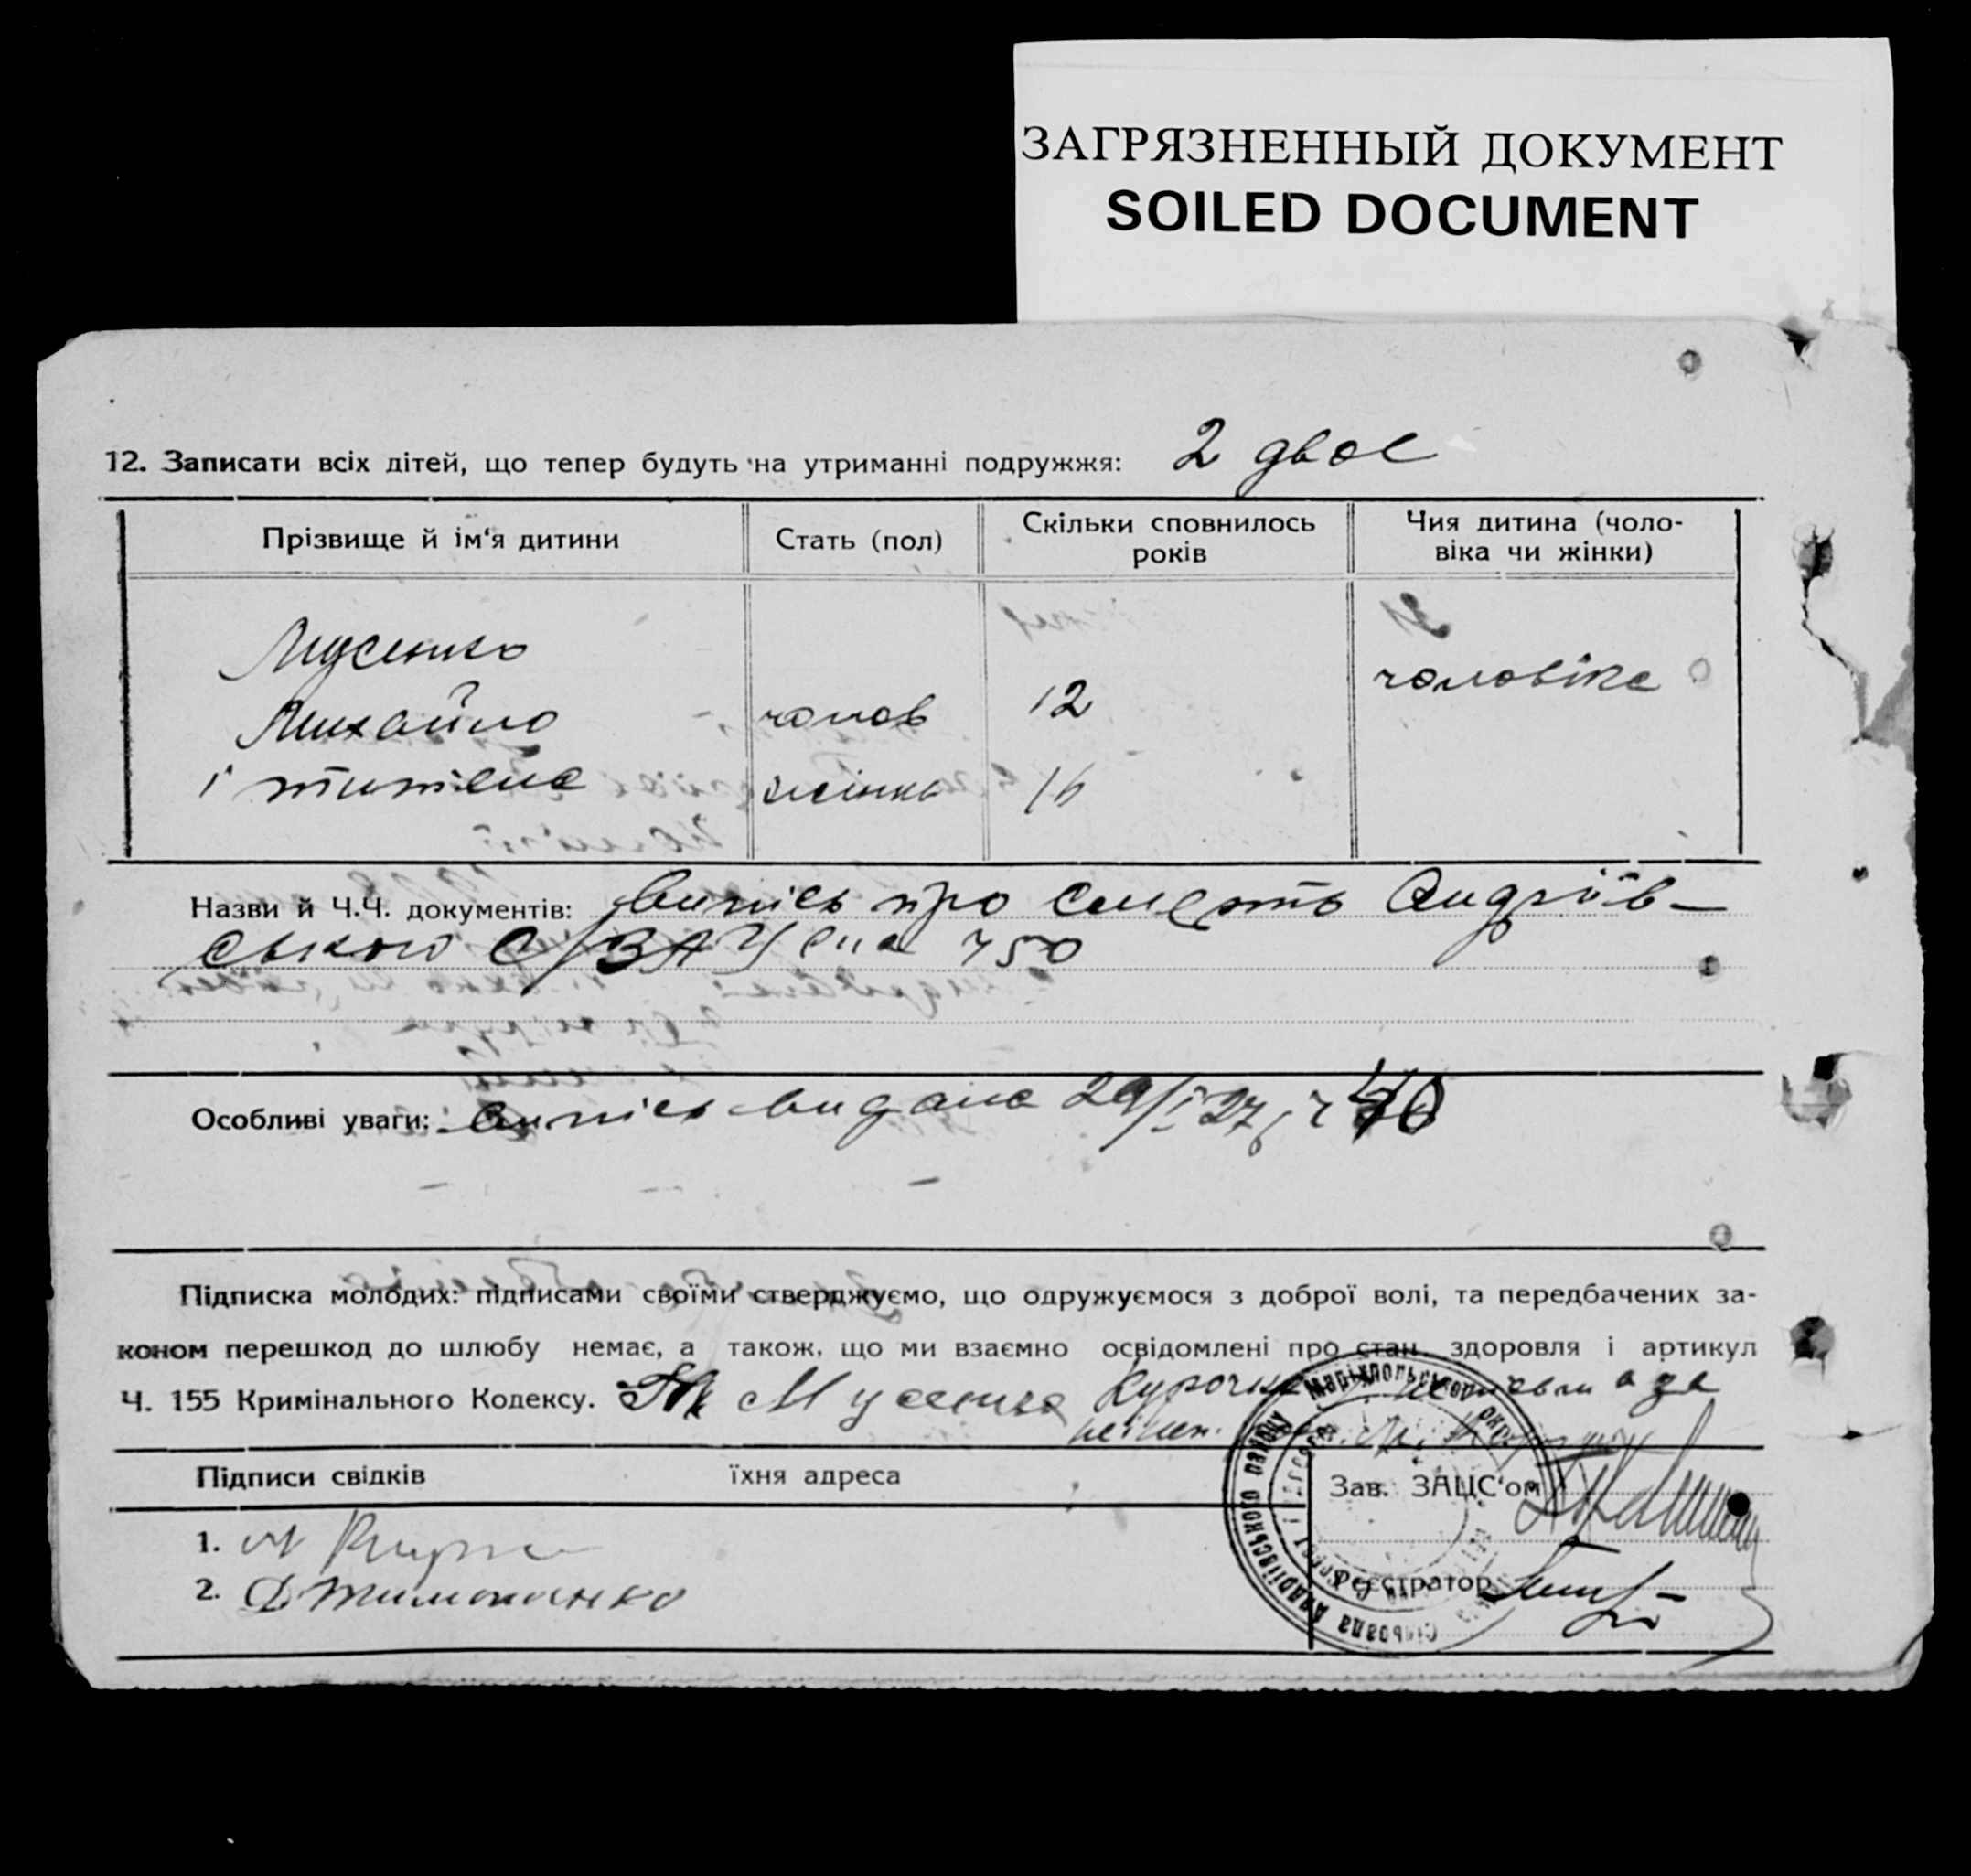 ЗАГРЯЗНЕННЫЙ ДОКУМЕНТ
SOILED DOCUMENT
12. Записати всіх дітей, що тепер будуть на утриманні подружжя: 2 двоє
Прізвище й ім'я дитини
Стать (пол)
Скільки сповнилось років
Чия дитина (чоловіка чи жінки)
Мусенко
Михайло чолов 12 чоловіка
і жінка 16
Назви й Ч.Ч. документів: Випись про смерть Андріїв-
ського с/ЗАЦСна 750
Особливі уваги: Випись видана 29/I 27
Підписка молодих: підписами своїми стверджуємо, що одружуємося з доброї волі, та передбачених за-
коном перешкод до шлюбу немає, а також, що ми взаємно освідомлені про стан здоровля і артикул
Ч. 155 Кримінального Кодексу. Мусенко
Підписи свідків їхня адреса
Зав. ЗАЦС'ом
1.
2. Д Тимошенко
Реєстратор
Сільрада Андріївського району Маріупольської